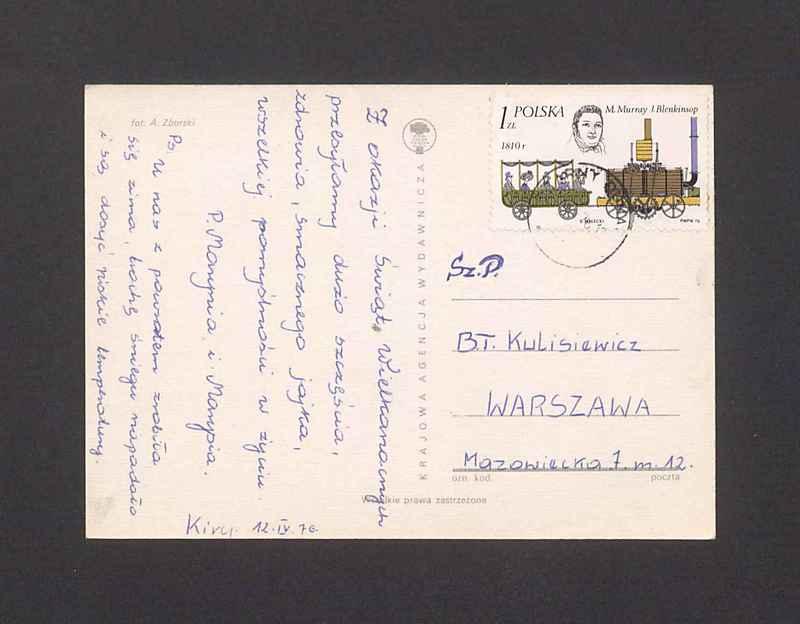 fot. A. Zborski
Z okazji Świąt Wielkanocnych
przesyłamy dużo szczęścia,
zdrowia, smacznego jajka,
wszelkiej pomyślności w życiu
P. Marysia i Marysia.
Ps. U nas z powrotem zrobiła
się zima, trochę śniegu napadało
i są dosyć niskie temperatury.
Kiry. 12.IV.76
KRAJOWA AGENCJA WYDAWNICZA
Wszelkie prawa zastrzeżone
1 ZŁ POLSKA
M. Murray J. Blenkinsop
1810 r
Sz.P.
B.T. Kulisiewicz
WARSZAWA
Mazowiecka 7. m. 12.
ozn. kod. poczta